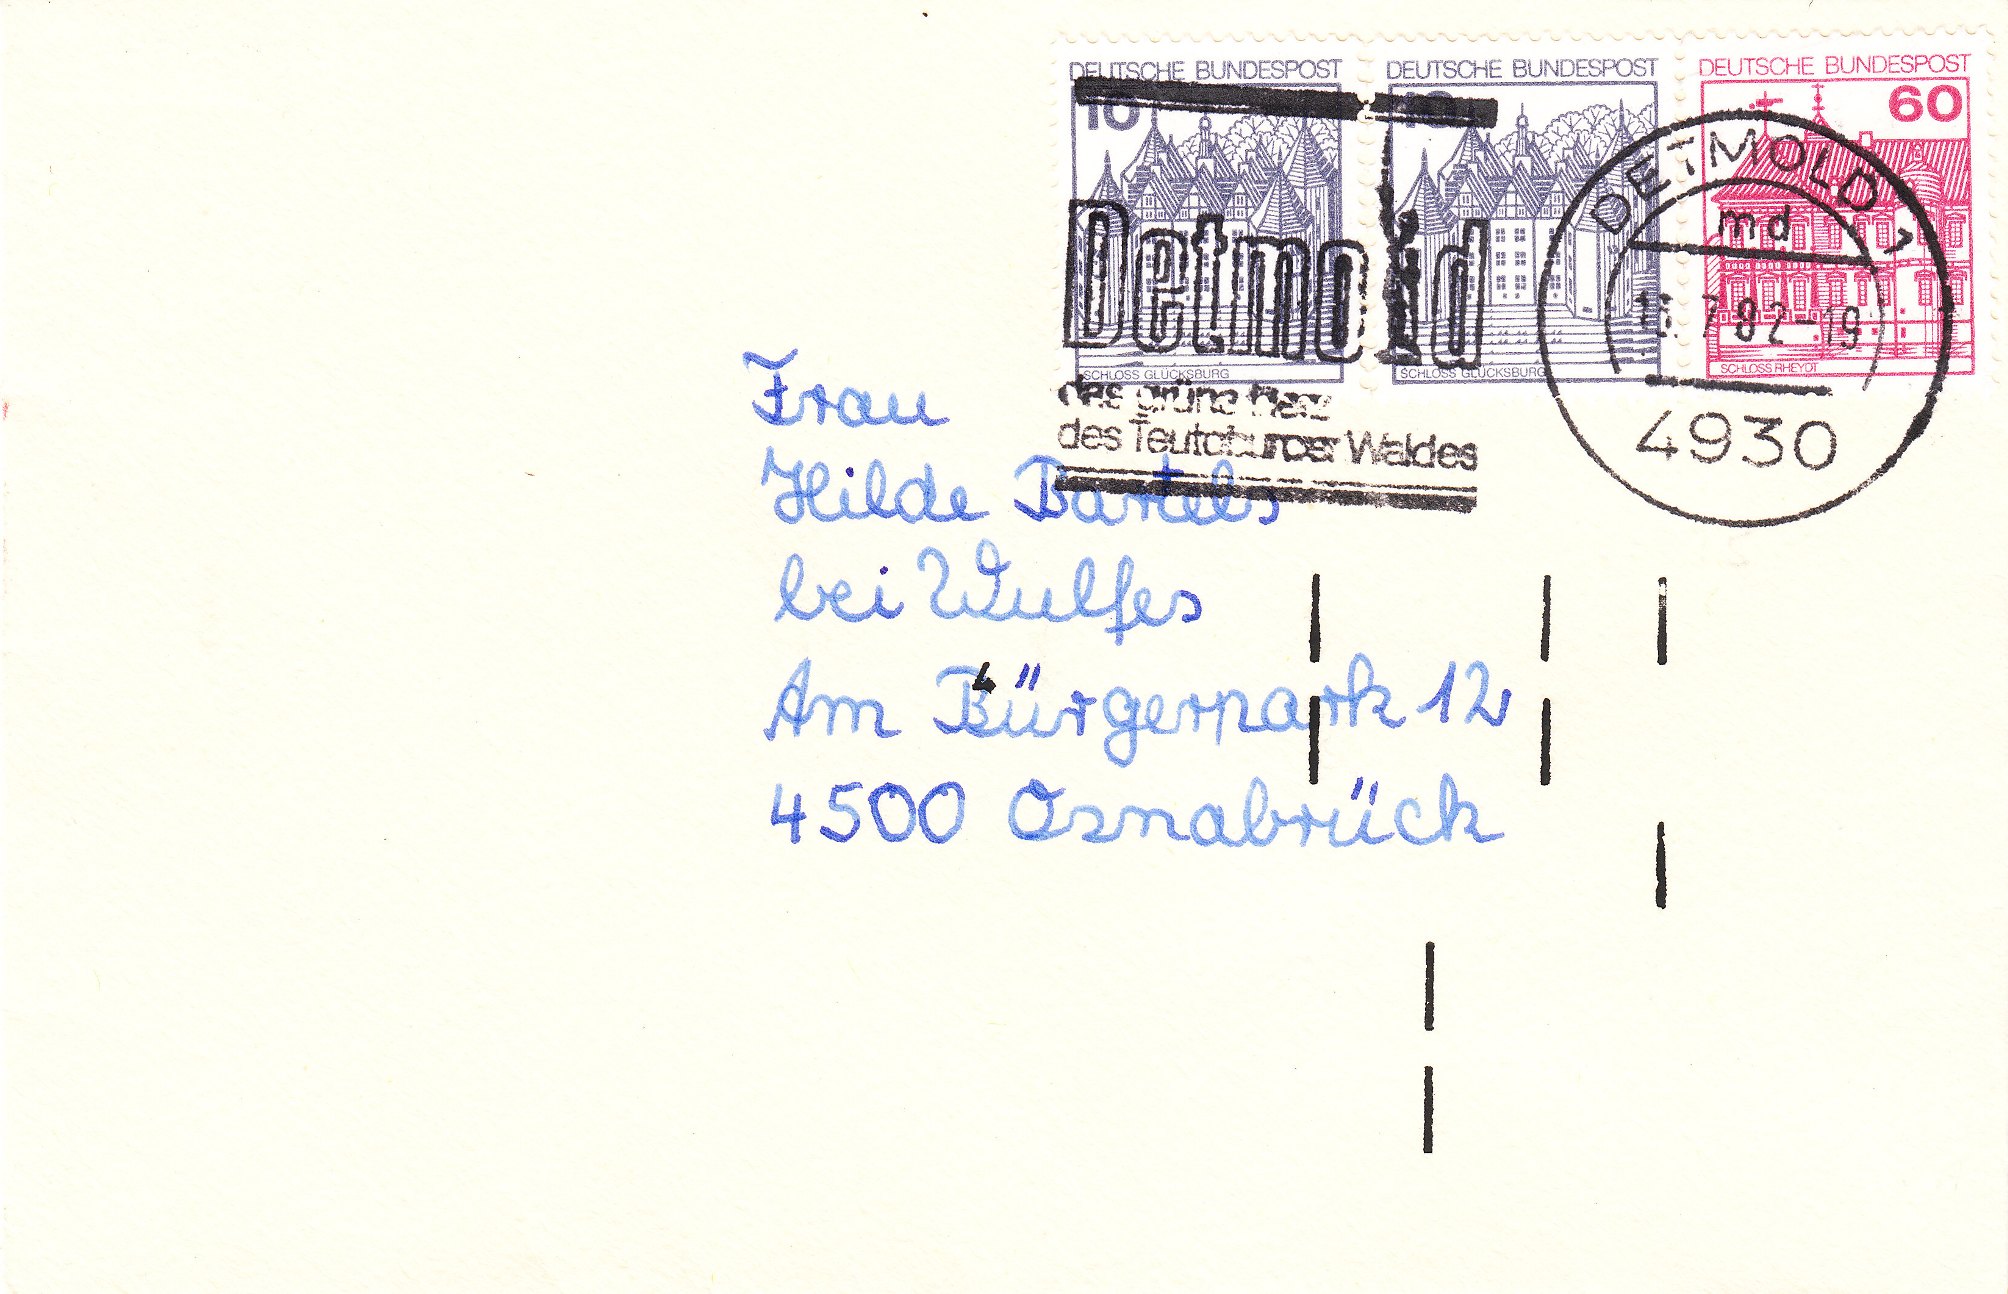 DEUTSCHE BUNDESPOST
10
SCHLOSS GLÜCKSBURG
DEUTSCHE BUNDESPOST
10
SCHLOSS GLÜCKSBURG
DEUTSCHE BUNDESPOST
60
SCHLOSS RHEYDT
Detmold
das grüne Herz
des Teutoburger Waldes
DETMOLD 1
md
7.82-19
4930
Frau
Hilde Bartels
bei Wulfes
Am Bürgerpark 12
4500 Osnabrück